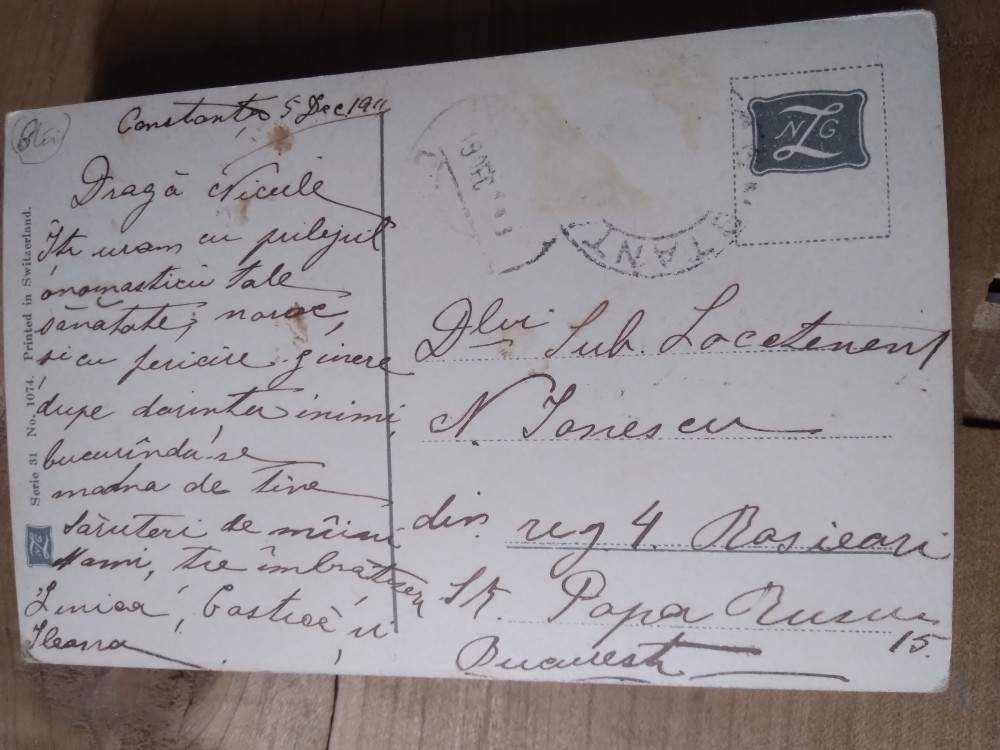 Constanța 5 Dec 1911
Dragă Nicule
Îți urăm cu prilejul
onomasticii tale
sănătate, noroc,
și cu fericire ginere
dupe dorința inimi
bucurîndu-se
mama de tine
Săruteri de mîini
Mami, ție îmbrățișeri
Linica, Costică și
Ileana
Serie 31 No. 1074. Printed in Switzerland.
NZG
NZG
STANT
Dlui Sub. Locotenent
N. Ionescu
din reg 4. Rosieori
Str. Popa Rusu
15.
Bucuresti